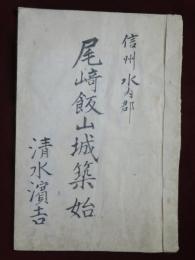 信州水内郡
尾﨑飯山城築始
清水濱吉